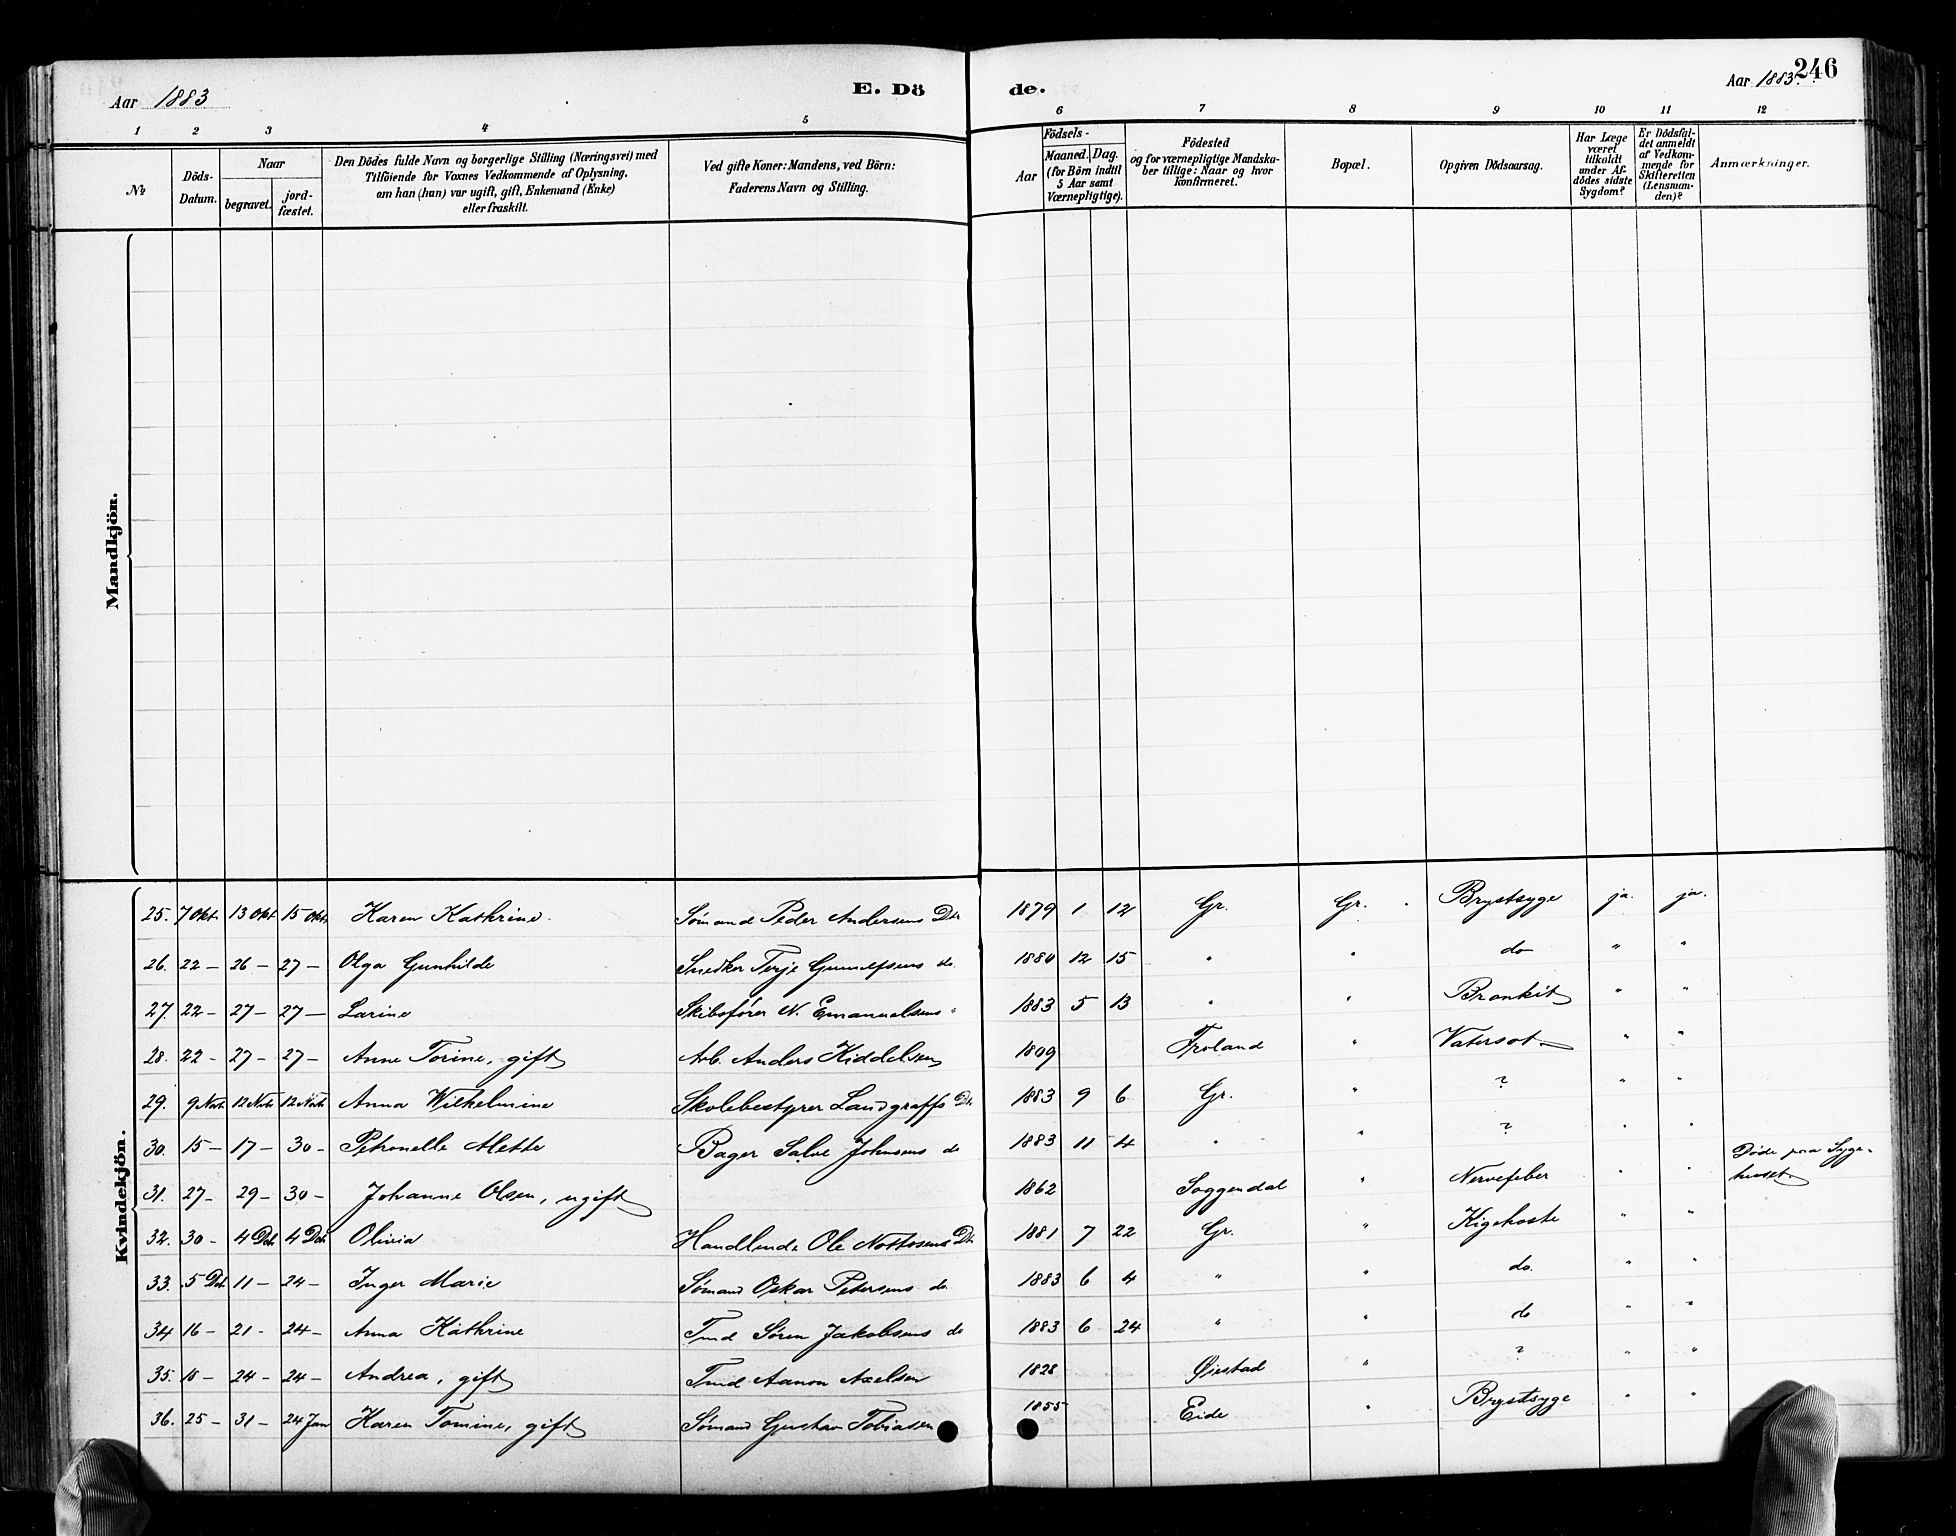 Aar 1883
E. Dö
de.
Aar 1883.
246
1 2 3 4 5 6 7 8 9 10 11 12
№
Döds-Datum.
Naar
begravet.
jord-fæstet.
Den Dödes fulde Navn og borgerlige Stilling (Næringsvei) med
Tilföiende for Voxnes Vedkommende af Oplysning,
om han (hun) var ugift, gift, Enkemand (Enke)
eller fraskilt.
Ved gifte Koner: Mandens, ved Börn:
Faderens Navn og Stilling.
Födsels-
Aar
Maaned. Dag.
(for Börn indtil
5 Aar samt
Værnepligtige).
Födested
og for værnepligtige Mandska-
ber tillige: Naar og hvor
konfirmeret.
Bopæl.
Opgiven Dödsaarsag.
Har Læge
været
tilkaldt
under Af-
dödes sidste
Sygdom?
Er Dödsfal-
det anmeldt
af Vedkom-
mende for
Skifteretten
(Lensman-
den)?
Anmærkninger.
Mandkjön.
Kvindekjön.
25. 7 Okt. 13 Okt 15 Okt. Karen Kathrine. Sømand Peder Andersens Dtr 1879 1 12 Gr. Gr. Brystsyge ja. ja.
26. 22 — 26 — 27 — Olga Gunhilde Snedker Terje Gunulfsens do 1880 12 15 " " do " "
27. 22 — 27 — 27 — Larine Skibsfører N. Emanuelsens " 1883 5 13 " " Bronkit " "
28. 22 — 27 — 27 — Anne Torine, gift Arb. Anders Kiddelsen 1809 Froland " Vatersot " "
29. 9 Nov. 12 Nov. 12 Nov. Anna Wilhelmine Skolebestyrer Landgraffs Dtr 1883 9 6 Gr. " ? " "
30. 15 — 17 — 30 — Petronelle Alette Bager Salve Johnsens do 1883 11 4 " " ? " "
31. 27 — 29 — 30 — Johanne Olsen, ugift 1862 Soggendal " Nervefeber " " Døde paa Syge-
huset.
32. 30 — 4 Dec. 4 Dec. Olivia Handlende Ole Dtr 1881 7 22 Gr. " Kighoste " "
33. 5 Dec. 11 — 24 — Inger Marie Sømand Oskar Petersens do 1883 6 4 " " do. " "
34 16 — 21 — 24 — Anna Kathrine Tmd Søren Jakobsens do 1883 6 24 " " do " "
35. — 24 — 24 — Andrea, gift Tmd Aanon Axelsen 1828 Øiestad " ? " "
36. 25 — 31 — 24 Jan Karen Tomine, gift Sømand Gustav Tobiassen 1855 Eide " Brystsyge " "